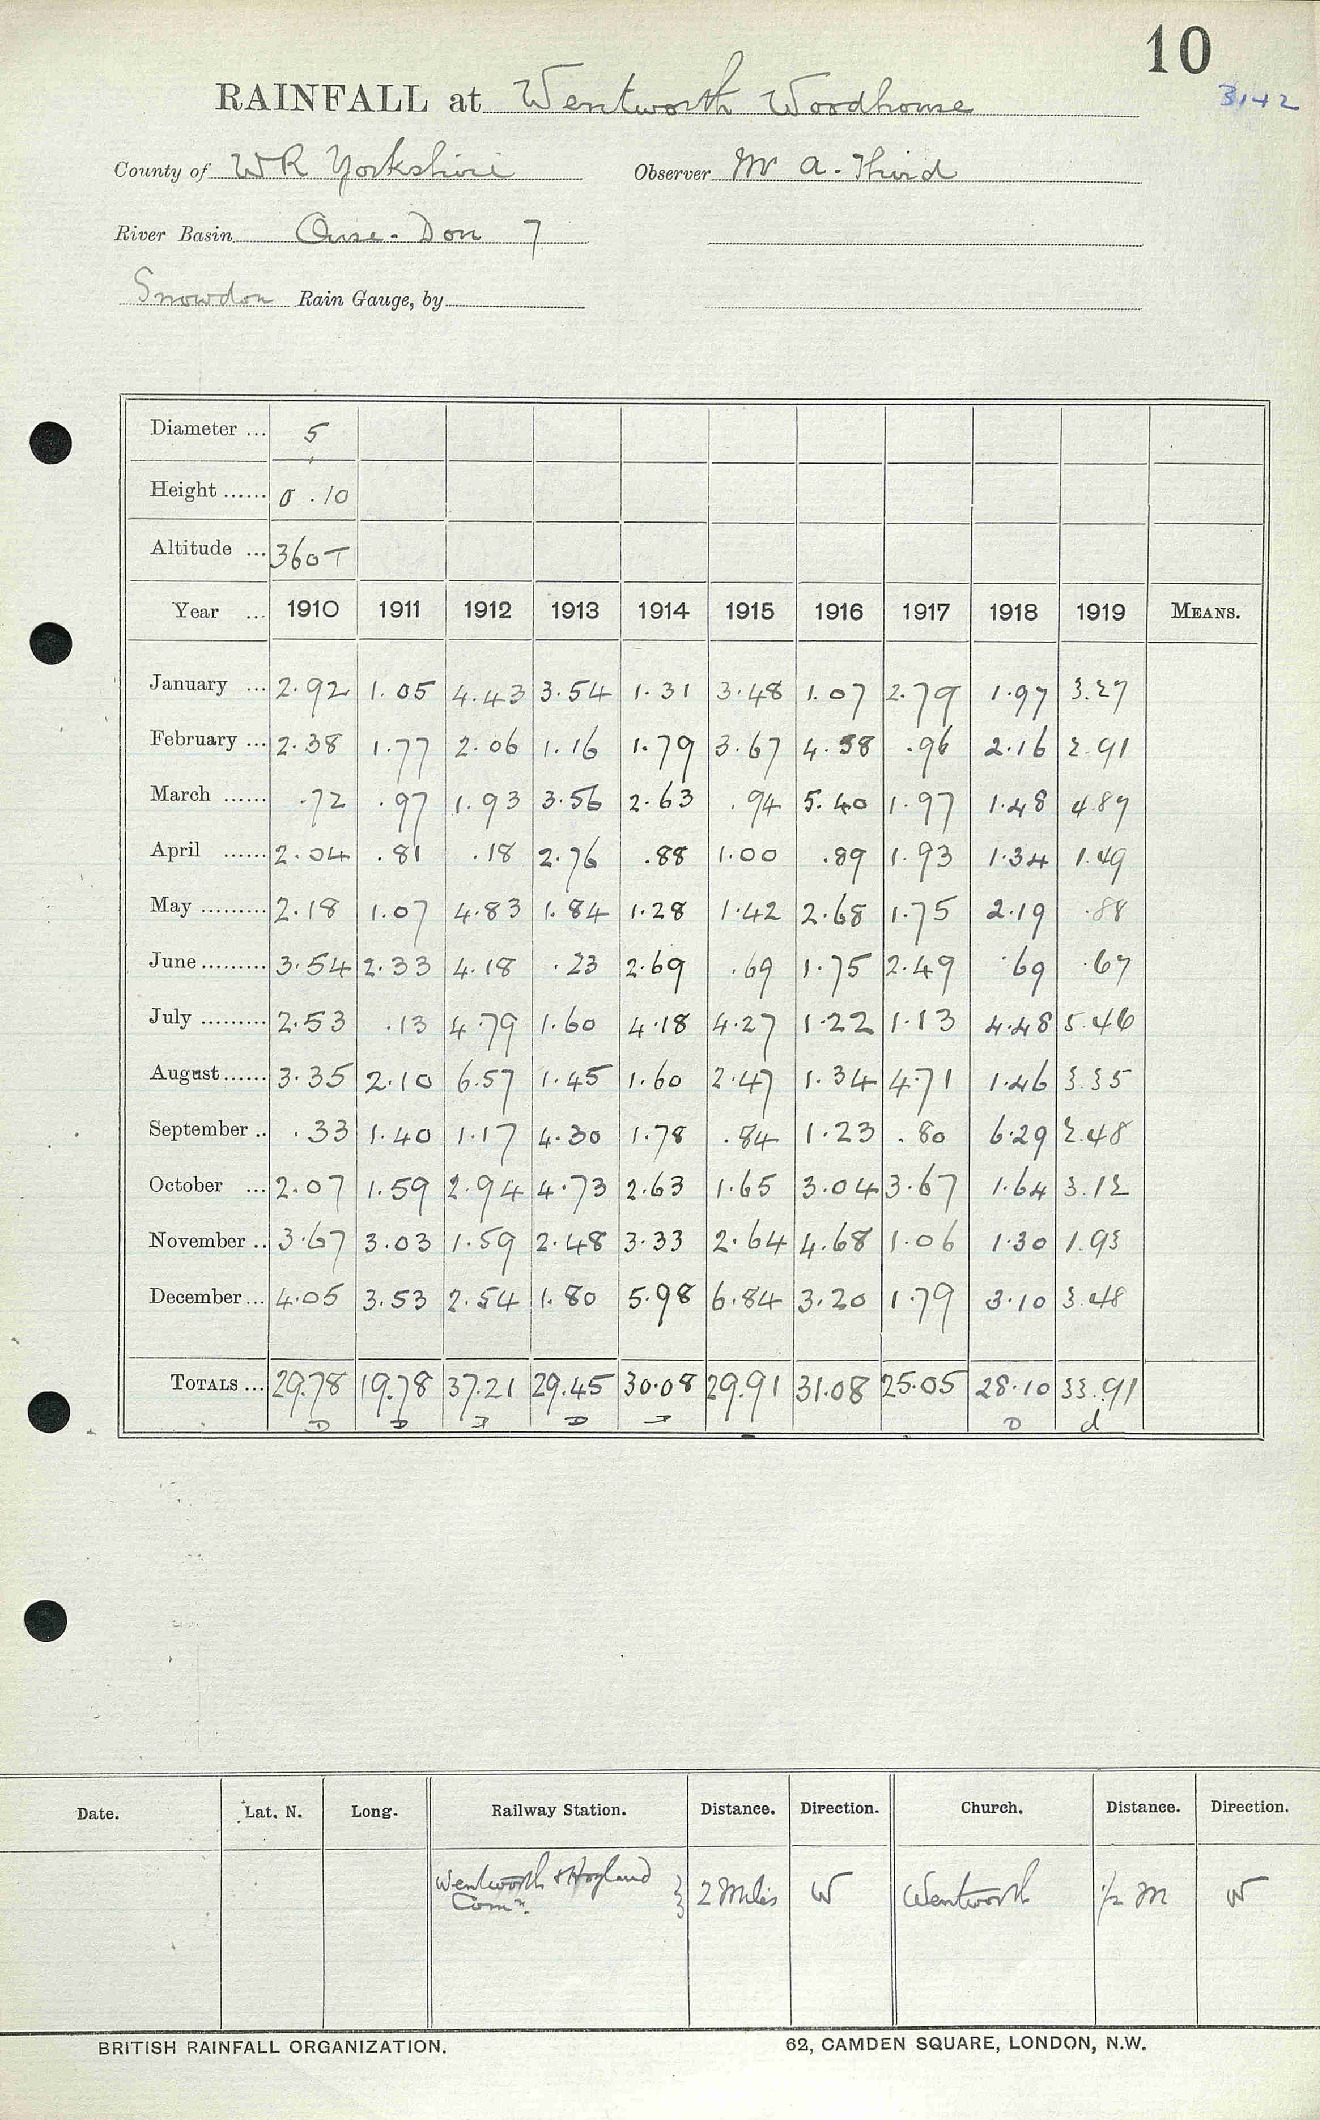 10
3142
RAINFALL at Wentworth Woodhouse
County of WR Yorkshire Observer Mr A. Third
River Basin Ouse - Don 7
Snowdon Rain Gauge, by
Diameter ... 5
Height ...... 0 . 10
Altitude ... 360 T
Year ... 1910 1911 1912 1913 1914 1915 1916 1917 1918 1919 MEANS.
January ... 2.92 1.05 4.43 3.54 1.31 3.48 1.07 2.79 1.97 3.27
February ... 2.38 1.77 2.06 1.16 1.79 3.67 4.58 .96 2.16 2.91
March ...... .72 .97 1.93 3.56 2.63 .94 5.40 1.97 1.48 4.87
April ...... 2.04 .81 .18 2.76 .88 1.00 .89 1.93 1.34 1.49
May ......... 2.18 1.07 4.83 1.84 1.28 1.42 2.68 1.75 2.19 .88
June ......... 3.54 2.33 4.18 .23 2.69 .69 1.75 2.49 .69 .67
July ......... 2.53 .13 4.79 1.60 4.18 4.27 1.22 1.13 4.48 5.46
August ...... 3.35 2.10 6.57 1.45 1.60 2.47 1.34 4.71 1.46 3.35
September .. .33 1.40 1.17 4.30 1.78 .84 1.23 .80 6.29 2.48
October ... 2.07 1.59 2.94 4.73 2.63 1.65 3.04 3.67 1.64 3.12
November .. 3.67 3.03 1.59 2.48 3.33 2.64 4.68 1.06 1.30 1.93
December ... 4.05 3.53 2.54 1.80 5.98 6.84 3.20 1.79 3.10 3.48
TOTALS ... 29.78 19.78 37.21 29.45 30.08 29.91 31.08 25.05 28.10 33.91
D D D D D D d
Date. Lat. N. Long. Railway Station. Distance. Direction. Church. Distance. Direction.
Wentworth & Hoyland
Comn. 2 Miles W Wentworth 1/2 M W
BRITISH RAINFALL ORGANIZATION. 62, CAMDEN SQUARE, LONDON, N.W.